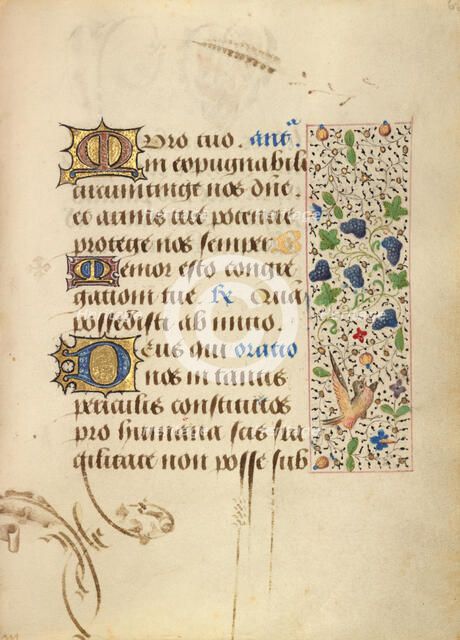 MUro tuo. antᵃ.
in expugnabili
circumcinge nos dn̄e.
et armis tue potencie
protege nos semper ℣
Memor esto congre
gationis tue. ℟ Quā
possedisti ab inicio.
Deus qui oratio
nos in tantis
periculis constitutos
pro humana scis fra
gilitate non posse sub